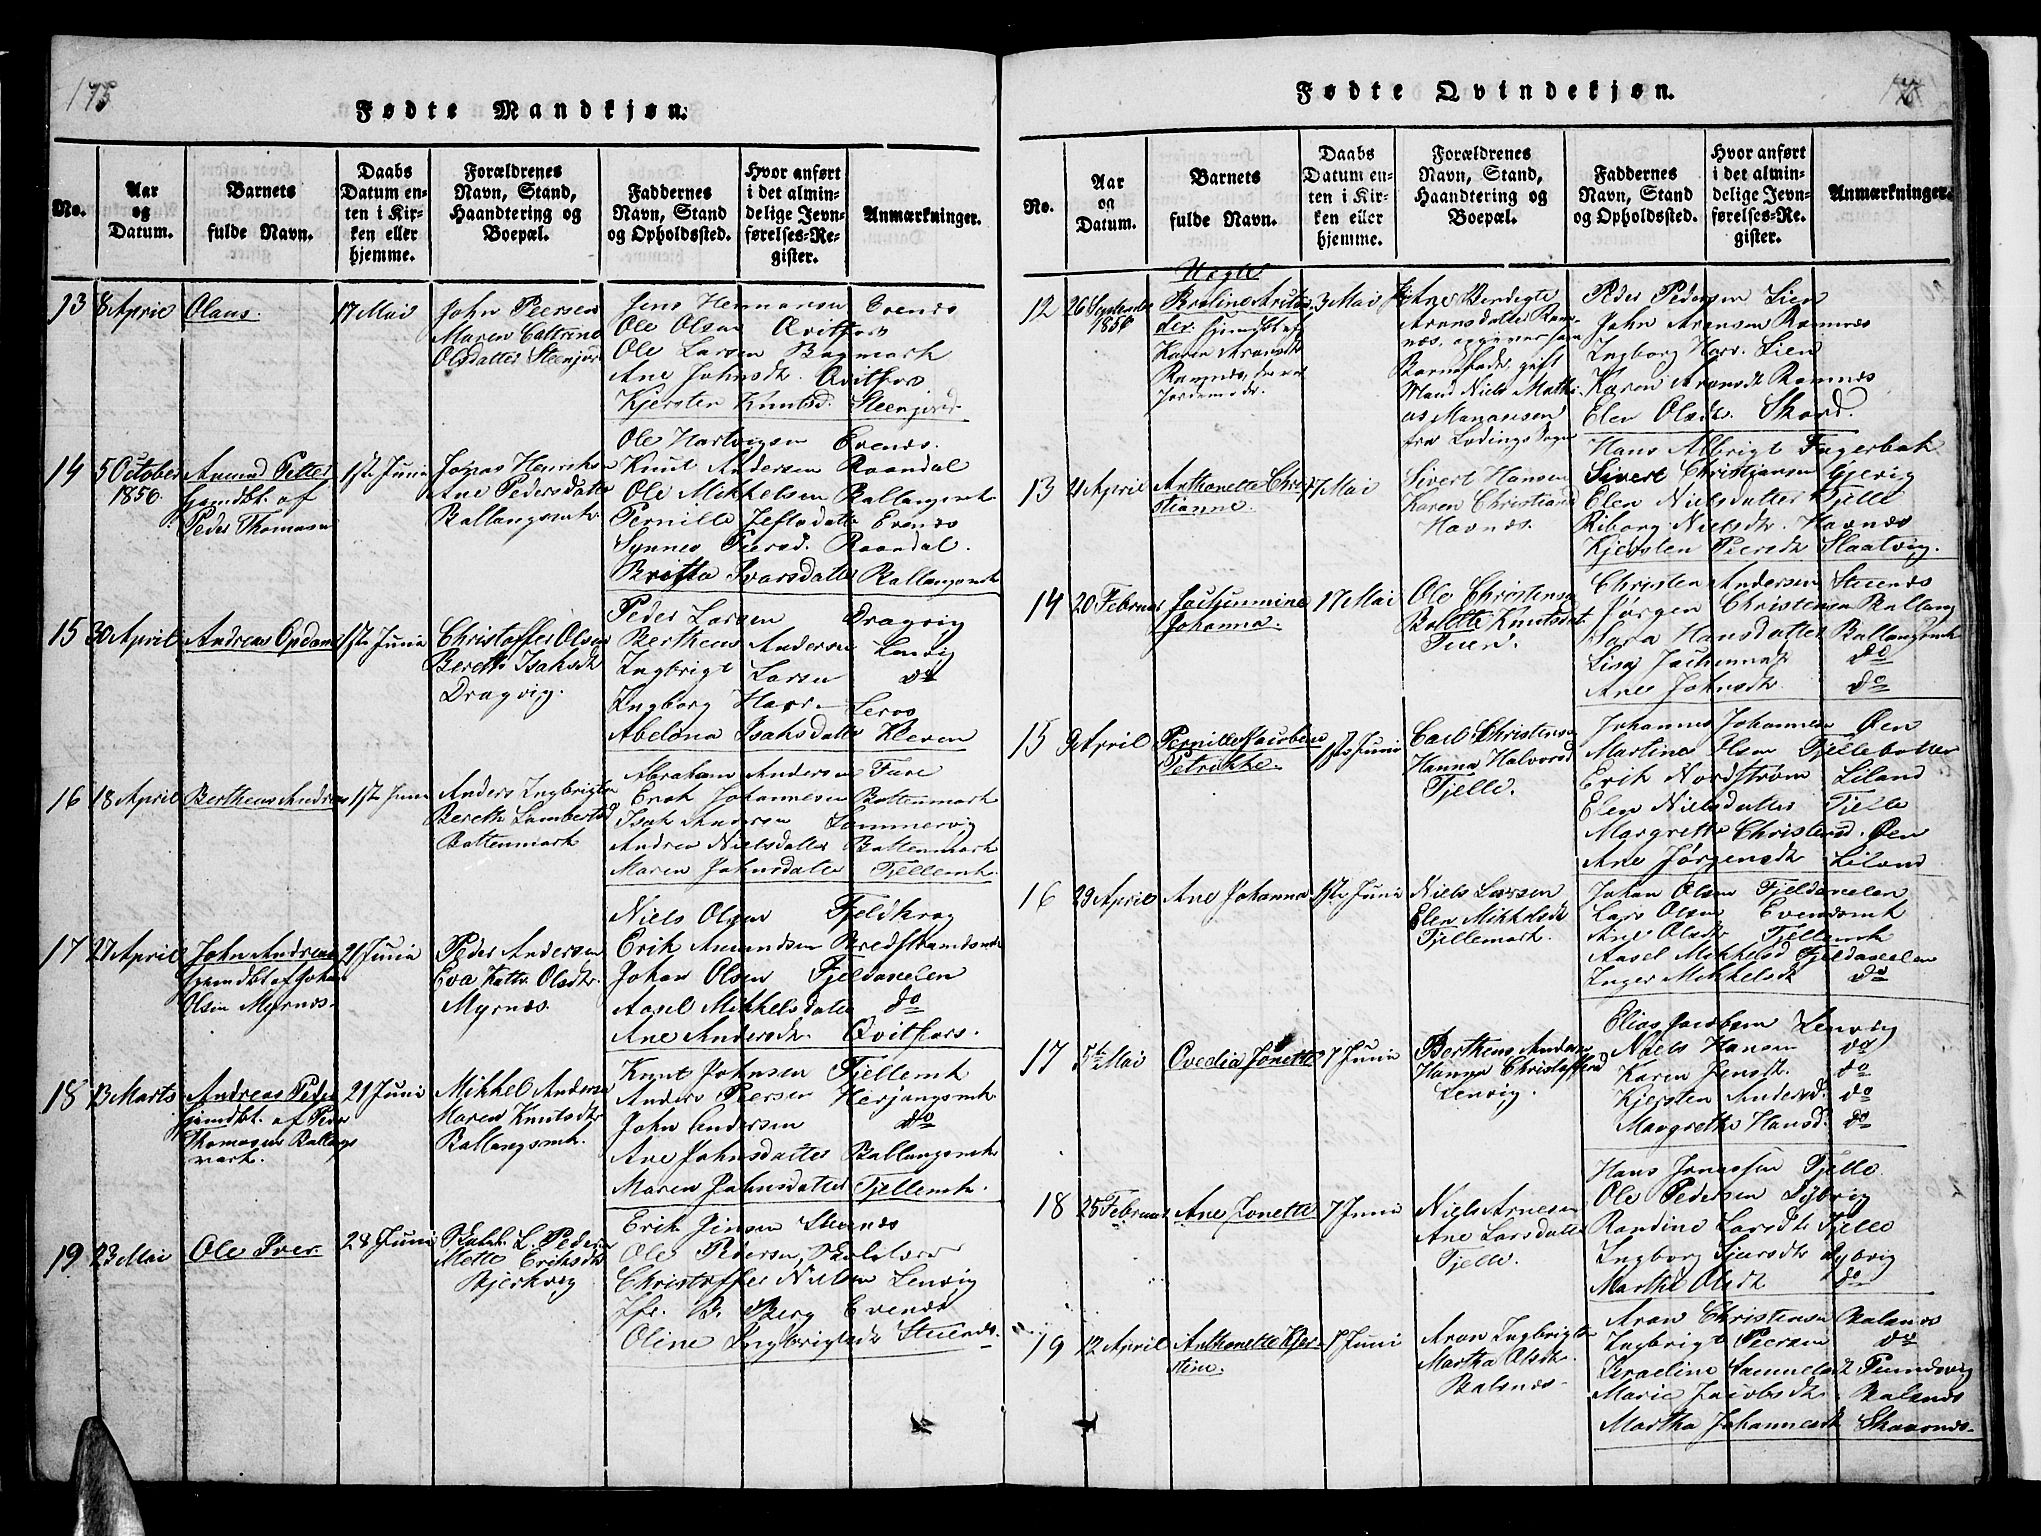 175
Fødte Mandkjøn.
No.
Aar
og
Datum.
Barnets
fulde Navn.
Daabs
Datum en-
ten i Kir-
ken eller
hjemme.
Forældrenes
Navn, Stand,
Haandtering og
Boepæl.
Faddernes
Navn, Stand
og Opholdssted.
Hvor anført
i det almin-
delige Jevn-
førelses-Re-
gister.
Anmærkninger.
13 8 April Olaus. 17 Mai
John Peersen
Maren Cattrine
Olsdatter Steenjord
Jens Hemmansen Evenes
Ole Olsen Qvitfors
Ole Larsen Bagmark
Ane Johnsdtr. Qvitfors.
Kjersten Knutsd. Steenjord.
14 5 October 1856 Amund Petter
hjemdbt. af
Peder Thomasen
1ste Junii
Jonas Henriksen
Ane Pedersdatter
Ballangsmk.
Ole Hartvigsen Evenes.
Knut Andersen Raandal
Ole Mikkelsen Ballangsmk
Pernille Jeftedatter Evenes
Synnev Peersd. Raandal.
Britta Ivarsdatter Ballangsmk
15 30 April Andreas Opdam 1ste Junii
Christoffer Olsen
Bereth Isaksdtr
Dragvig.
Peder Larsen Dragvig
Bertheus Andersen Lenvig
Ingbrigt Larsen do
Ingborg Hær. Leros
Abelona Isaksdatter Kleven
16 18 April Bertheus Andreas 1ste Junii
Anders Ingbrigtsen
Bereth Lambertsd
Bottenmark
Abraham Andersen Fure
Erik Johannesen Bottenmark
Isak Andersen Sommervig
Andrea Nielsdatter Bottenmark
Maren Johnsdatter Fjellemk.
17 27 April John Andreas
hjemdbt af Johan
Olsen Myrnes.
21 Junii
Peder Andersen
Eva Kattr. Olsdtr.
Myrnes.
Niels Olsen Fjeldkrog
Erik Amundsen Bredstrandsmk
Johan Olsen Fjeldaxelen
Aasel Mikkelsdatter do
Ane Andersdtr. Qvitfors.
18 23 Marts Andreas Peder
hjemdbt. af Peder
Thomasen Ballangs
mark.
21 Junii
Mikkel Andersen
Maren Knutsdtr.
Ballangsmk.
Knut Johnsen Fjellemk
Anders Peersen Herjangsmk
John Andersen do
Ane Johnsdatter Ballangsmk
Maren Johnsdatter Fjellemk.
19 23 Mai Ole Iver. 28 Junii
L. Pedersen
Mette Eriksdtr
Bjerkvig
Erik Jensen Stunes
Ole Pedersen
Christoffer Nielsen Lenvig
Jfr. B. Berg Evenes
Oline Ingbrigtsdtr Stunes.
Fødte Qvindekjøn.
No.
Aar
og
Datum.
Barnets
fulde Navn.
Daabs
Datum en-
ten i Kir-
ken eller
hjemme.
Forældrenes
Navn, Stand,
Haandtering og
Boepæl.
Faddernes
Navn, Stand
og Opholdssted.
Hvor anført
i det almin-
delige Jevn-
førelses-Re-
gister.
Anmærkninger.
12 26 September 1856
Uægte
hjemdbt af
Karen Aronsdtr
Ramnes,
Jordemodr.
3 Mai
Pige Ane Bendegte
Aronsdatter Ram-
nes. opgiver som
Barnefader gift
Mand Niels Mathi-
as Mananssen
fra Lødings Sogn
Peder Pedersen Lien
John Aronsen Ramnes
Ingborg Hær. Lien
Karen Aronsdtr Ramnes
Elen Olsdtr. Skord.
13 21 April Anthonette Chri-
stianne.
17 Mai
Sivert Hansen
Karen Christiansd
Havnes.
Hans Albrigt Fagerbak
Sivert Christiansen Gjervig
Elen Nielsdatter Fjelle
Riborg Nielsdtr. Havnes
Kjersten Peersdtr Slaatvig.
14 20 Februar Jachimmine
Johanna.
17 Mai
Ole Christensen
Bolette Knutsdat.
Tuen.
Christen Andersen Stunes
Jørgen Christensen Ballang
Sara Hansdatter Ballangsmk
Lisa Jachimms do
Ane Johnsdtr. do
15 9 April Pernille Jacobine
Petrikke.
1ste Junii
Carl Christensen
Hanna Halvorsd
Fjelle.
Johannes Johannesen Øen
Martines Olsen Fjellebotten
Erik Nordstrøm Liland
Elen Nielsdatter Fjelle
Margrethe Christensd. Øen
Ane Jørgensdtr Liland
16 29 April Ane Johanna 1ste Junii
Niels Larsen
Elen Mikkelsdtr
Fjellemark.
Johan Olsen Fjeldaxelen
Lars Olsen Evenesmk
Ane Olsdtr Fjellemk
Aasel Mikkelsd Fjeldaxelen
Inger Mikkelsdtr do
17 5te Mai Ovedia Jonette 7 Junii
Bertheus Andersen
Hanna Christoffersd
Lenvig.
Elias Jacobsen Lenvig
Niels Hansen do
Karen Jensdtr. do
Kjersten Andersd. do
Margrethe Hansd. do
18 25 Februar Ane Jonette 7 Junii
Niels Arnesen
Ane Larsdatter
Fjelle.
Hans Jonassen Fjelle
Ole Pedersen Dybvig
Randine Larsdtr Fjelle
Ingborg Sjursdtr Dybvig
Marthe Olsdtr do
19 12 April Anthonette Kjer-
stine.
7 Junii
Aron Ingbrigtsen
Martha Olsdtr.
Balsnes.
Aron Christensen Balsnes
Ingbrigt Peersen do
Israeline Samuelsd Pundsvig
Marie Jacobsdtr Balsnes
Martha Johannesdtr Skavnes.